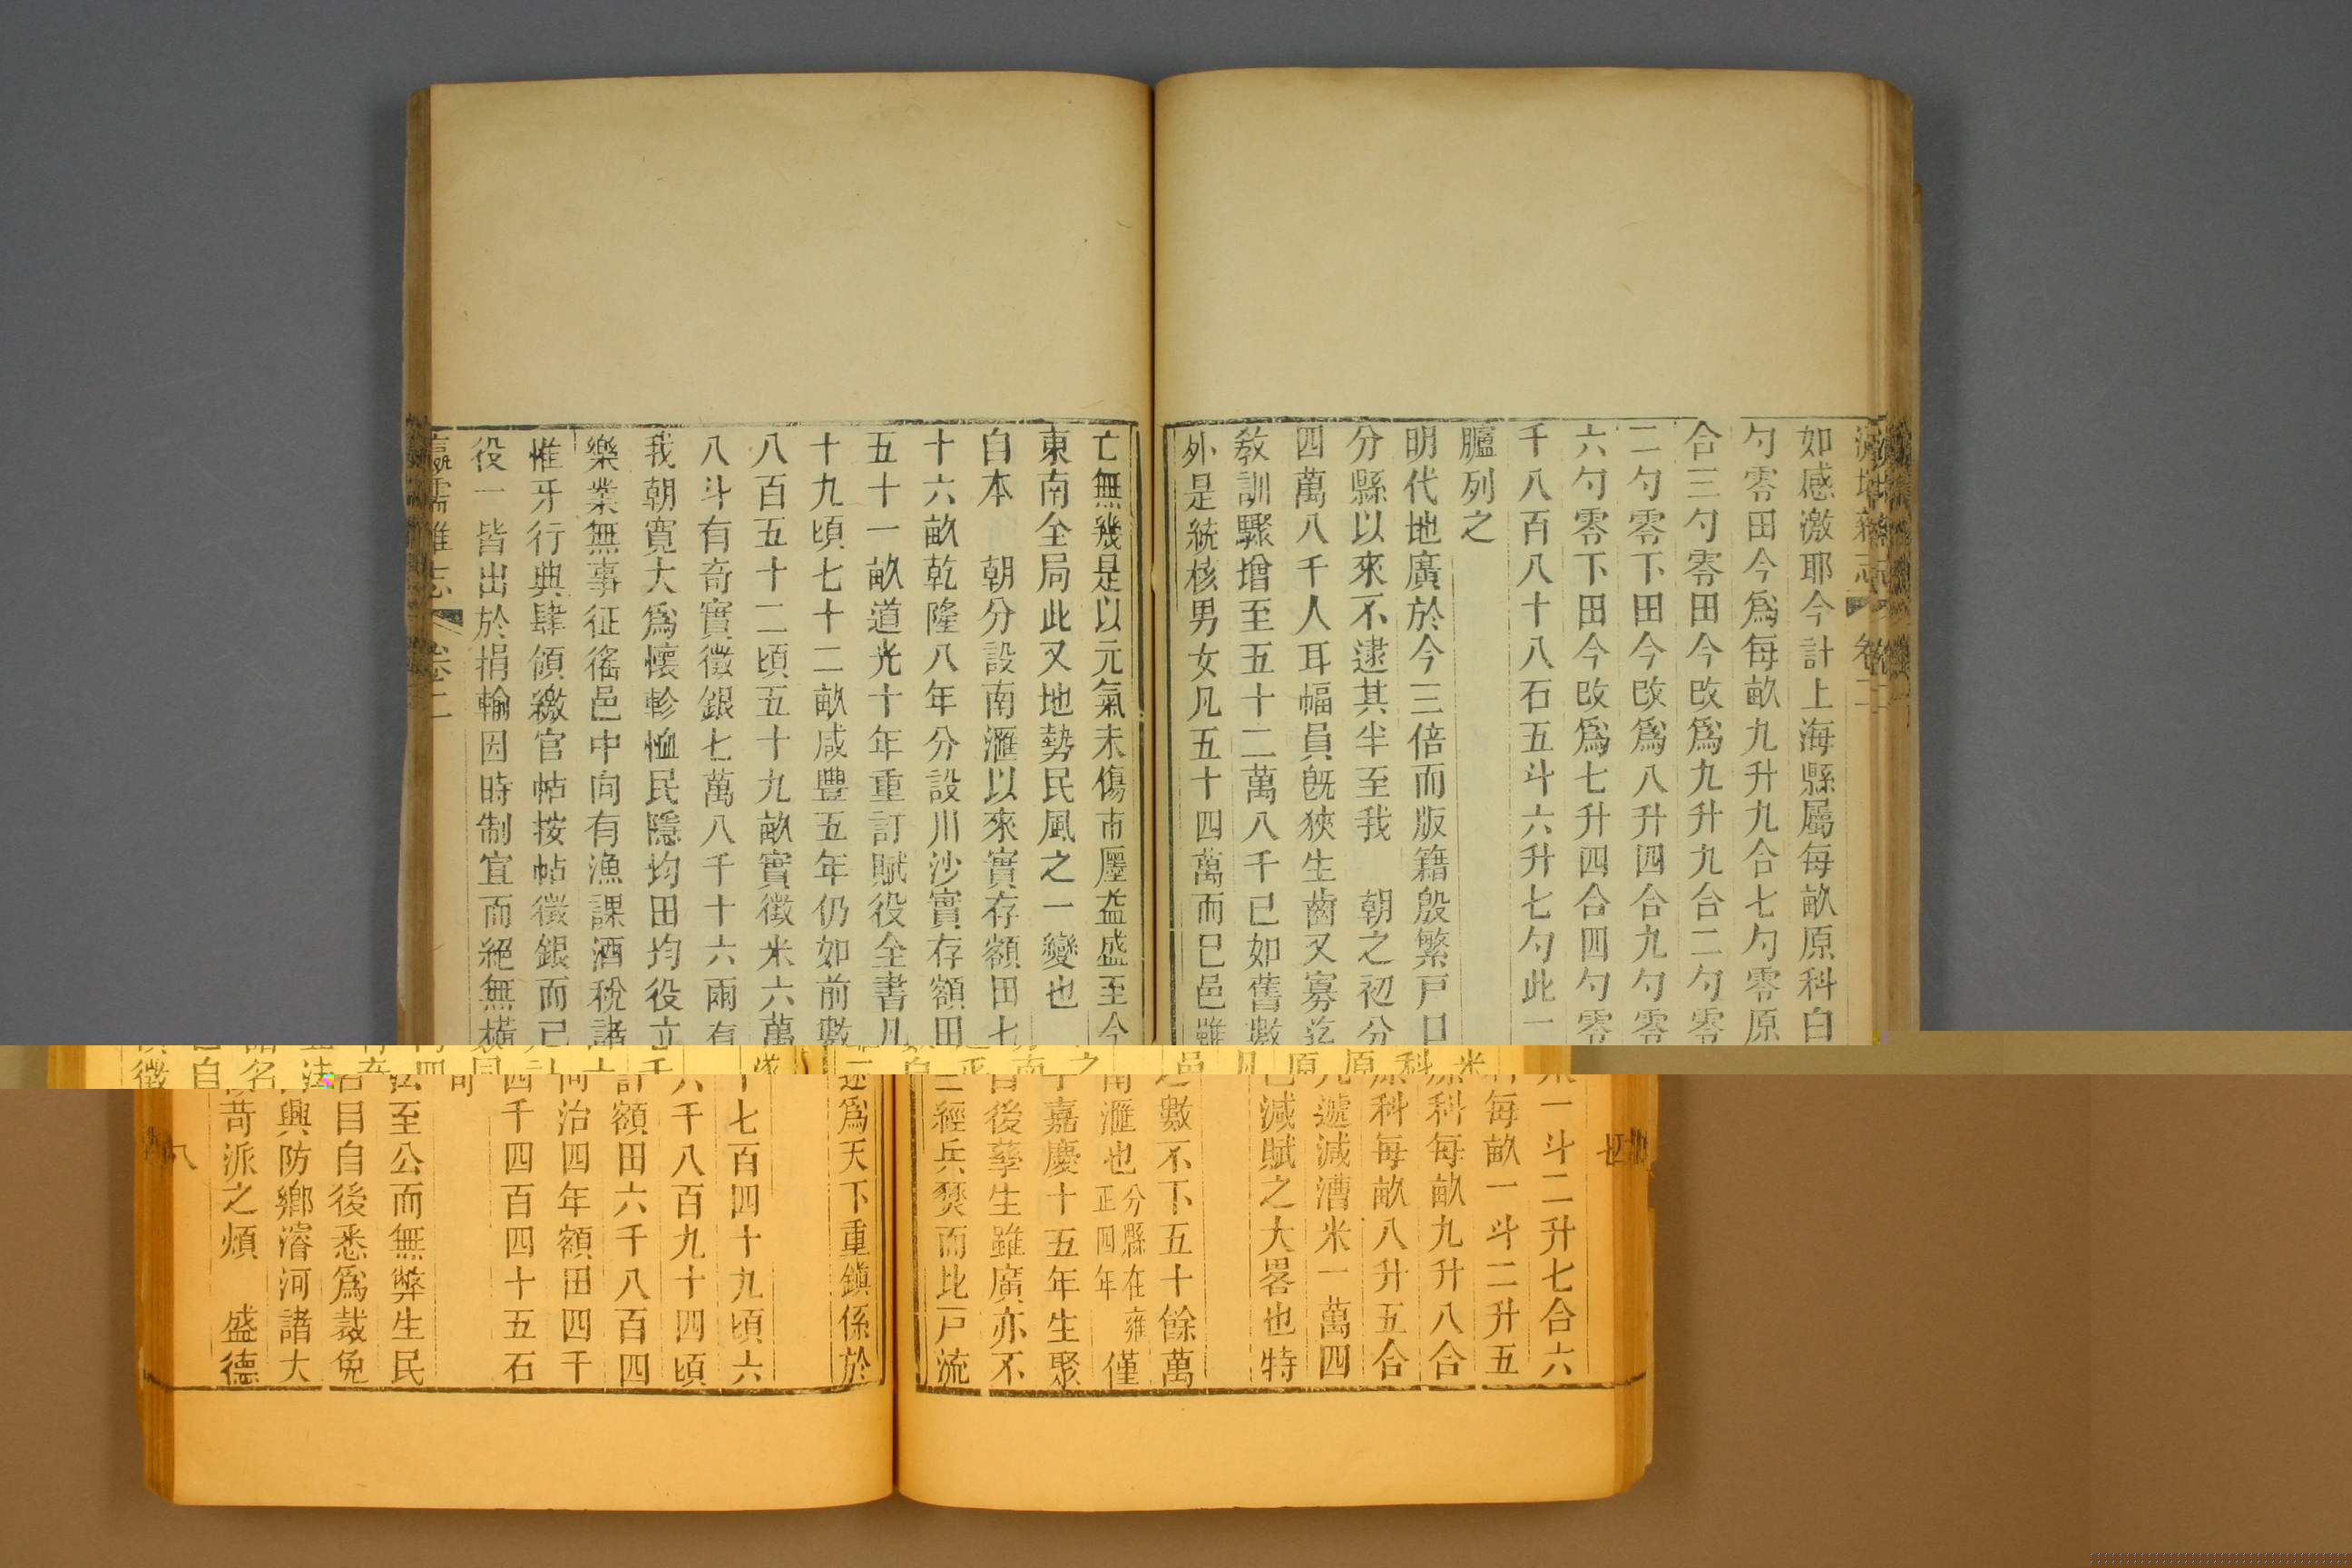 瀛壖雜志 卷二 七
如感激耶今計上海縣屬每畝原科白米一斗二升七合六
勺零田今爲每畝九升九合七勺零原科每畝一斗二升五
合三勺零田今改爲九升九合二勺零原科每畝九升八合
二勺零下田今改爲八升四合九勺零原科每畝八升五合
六勺零下田今改爲七升四合四勺零凡遞減漕米一萬四
千八百八十八石五斗六升七勺此一邑減賦之大畧也特
臚列之
明代地廣於今三倍而版籍殷繁戸口之數不下五十餘萬
分縣以來不逮其半至我 朝之初分南滙也分縣在雍正四年僅
四萬八千人耳幅員旣狹生齒又寡迄乎嘉慶十五年生聚
敎訓驟增至五十二萬八千已如舊數自後孳生雖廣亦不
外是統核男女凡五十四萬而已邑雖三經兵燹而比戸流
亡無幾是以元氣未傷市廛益盛至今遂爲天下重鎭係於
東南全局此又地勢民風之一變也
自本 朝分設南滙以來實存額田七千七百四十九頃六
十六畝乾隆八年分設川沙實存額田六千八百九十四頃
五十一畝道光十年重訂賦役全書凡計額田六千八百四
十九頃七十二畝咸豐五年仍如前數同治四年額田四千
八百五十二頃五十九畝實徵米六萬四千四百四十五石
八斗有奇實徵銀七萬八千十六兩有奇
我朝寬大爲懷軫恤民隱均田均役立法至公而無弊生民
樂業無事征徭邑中向有漁課酒稅諸名目自後悉爲裁免
惟牙行典肆領繳官帖按帖徵銀而已自興防鄉濬河諸大
役一皆出於捐輸因時制宜而絕無橫徵苛派之煩 盛德
瀛壖雜志 卷二 八